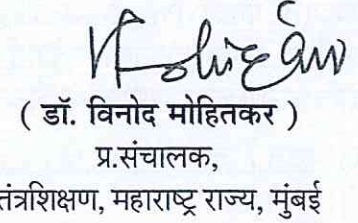 ( डॉ. विनोद मोहितकर )
प्र.संचालक,
तंत्रशिक्षण, महाराष्ट्र राज्य, मुंबई